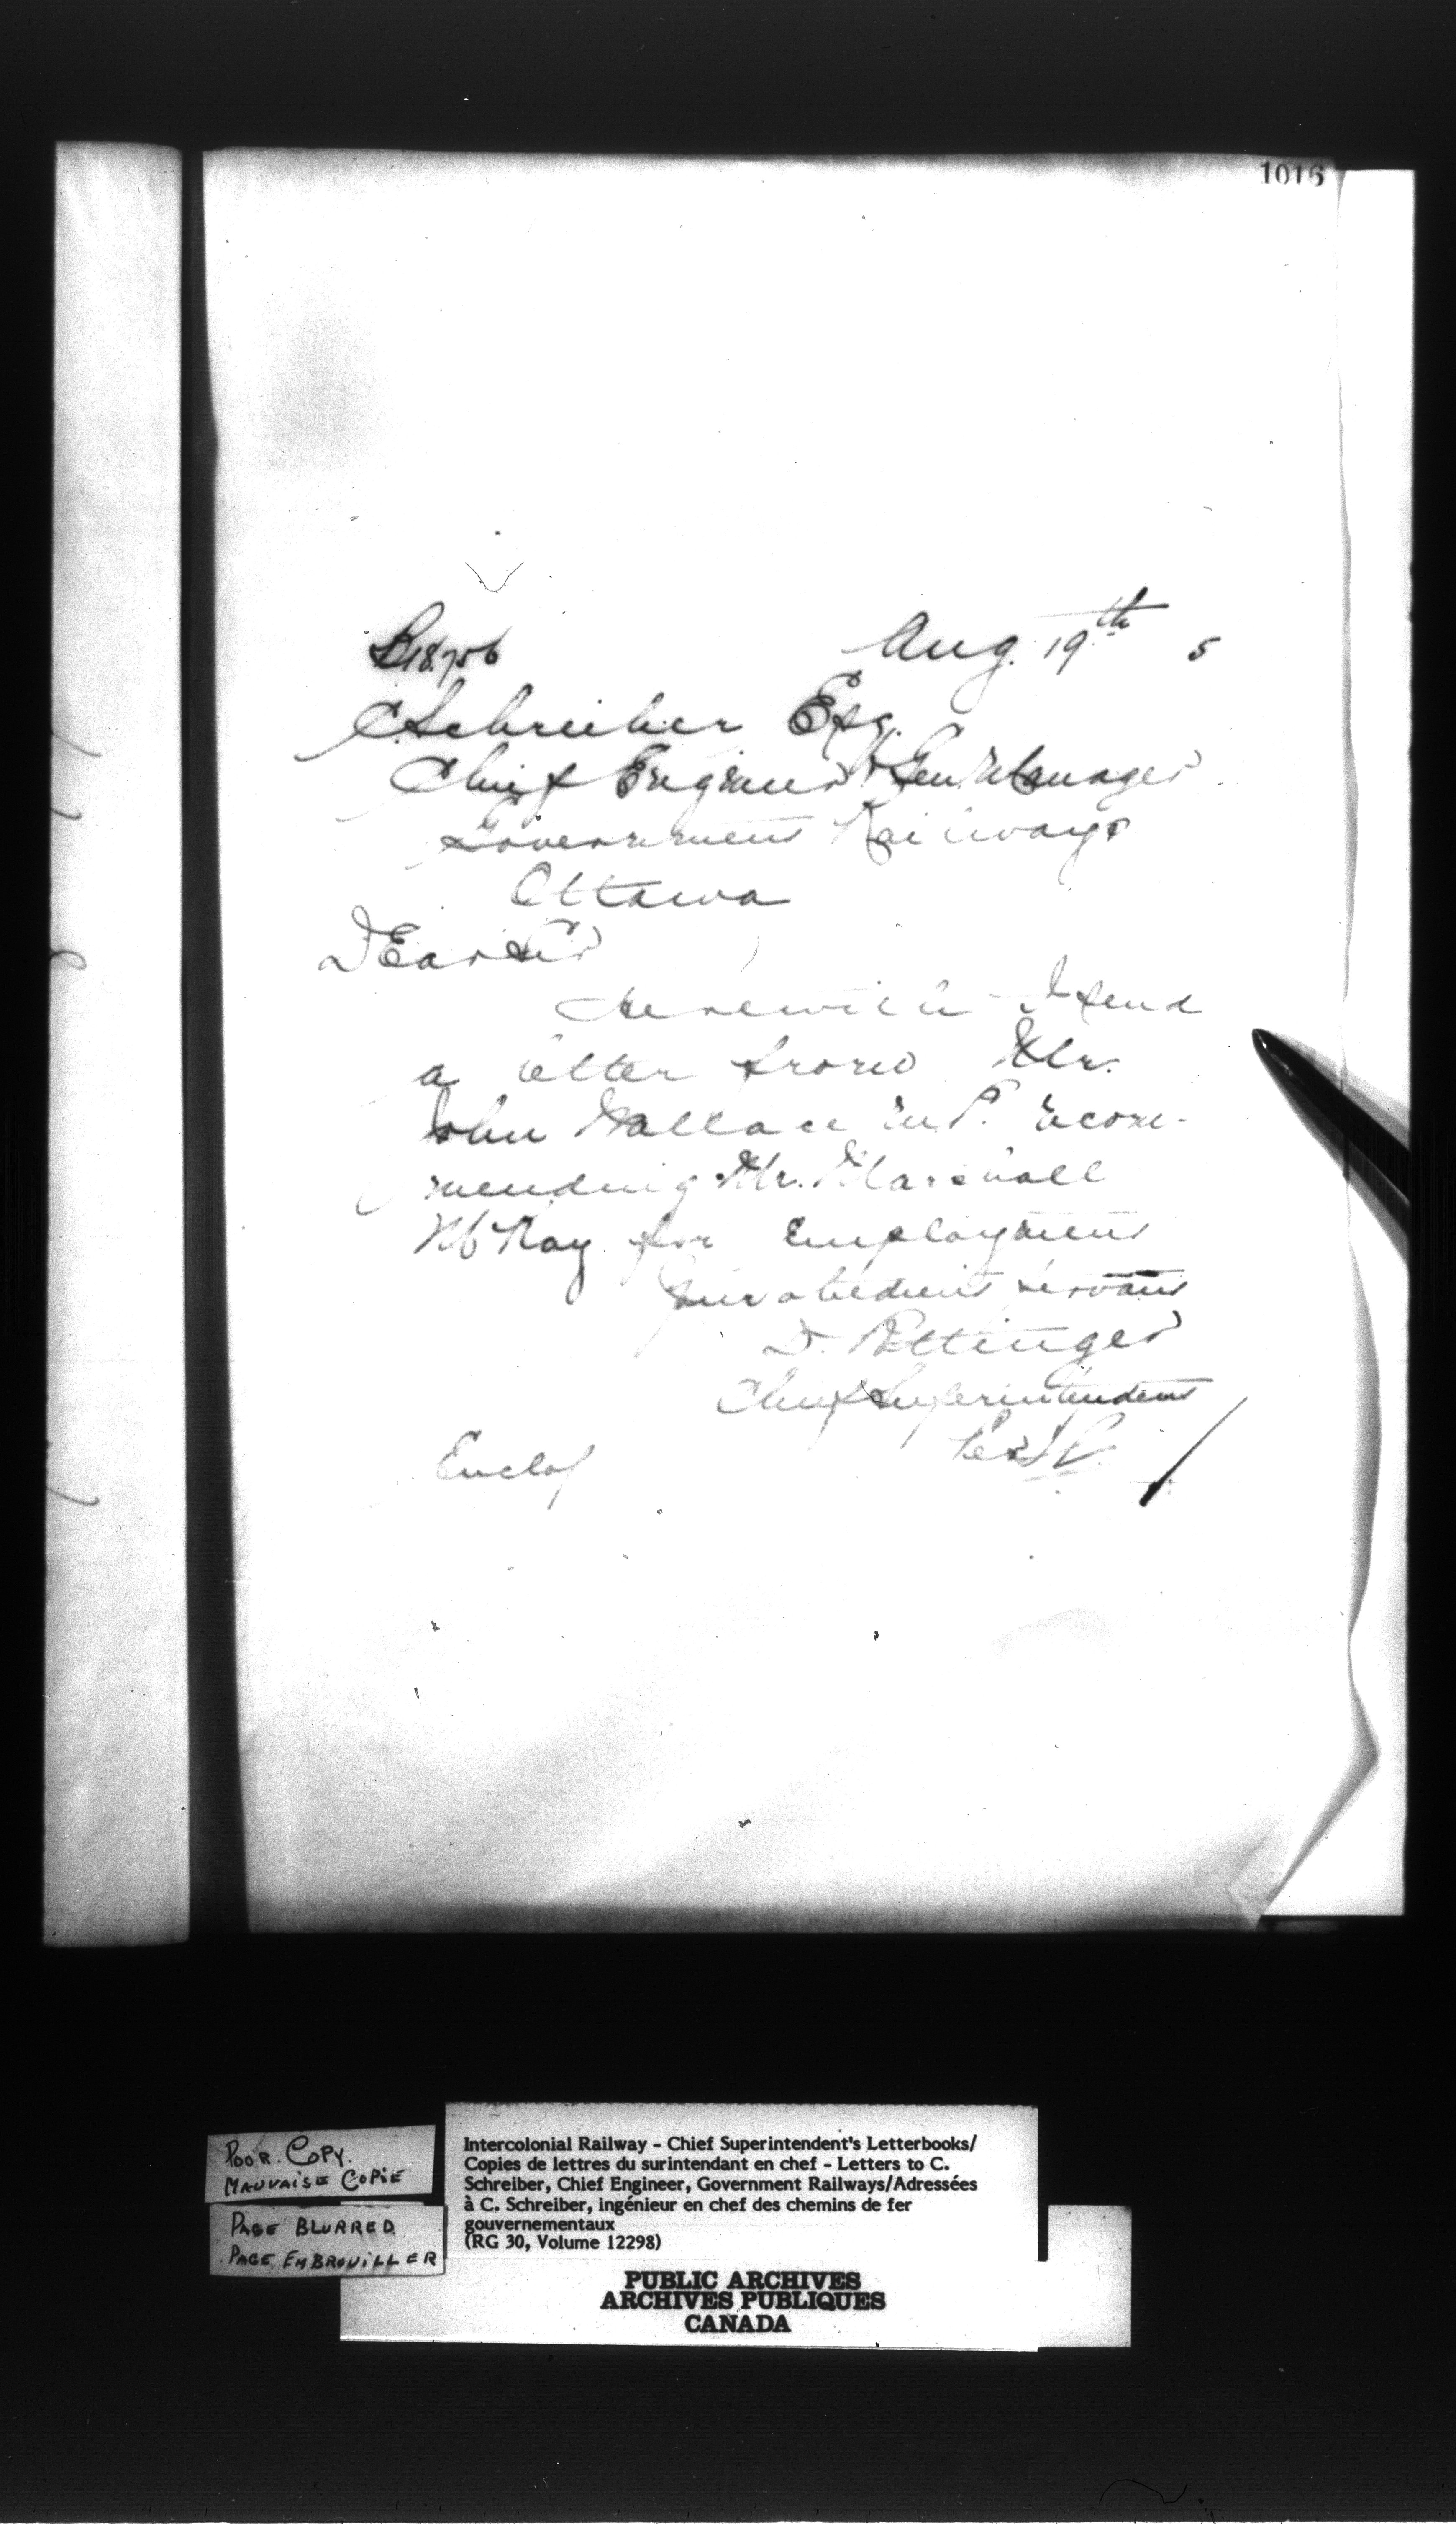 1016
Aug. 19th 5
C Schreiber Esq.
Chief Engineer & Gen Manager
Government Railways
Ottawa
Dear Sir
Herewith I send
a letter from Mr.
John Wallace M.P. recom-
mending Mr. Marshall
McKay for employment
Your obedient servant
D. Pottinger
Chief Superintendent
Enclos
POOR COPY.
MAUVAISE COPIE
PAGE BLURRED
PAGE EMBROUILLER
Intercolonial Railway - Chief Superintendent's Letterbooks/
Copies de lettres du surintendant en chef - Letters to C.
Schreiber, Chief Engineer, Government Railways/Adressées
à C. Schreiber, ingénieur en chef des chemins de fer
gouvernementaux
(RG 30, Volume 12298)
PUBLIC ARCHIVES
ARCHIVES PUBLIQUES
CANADA